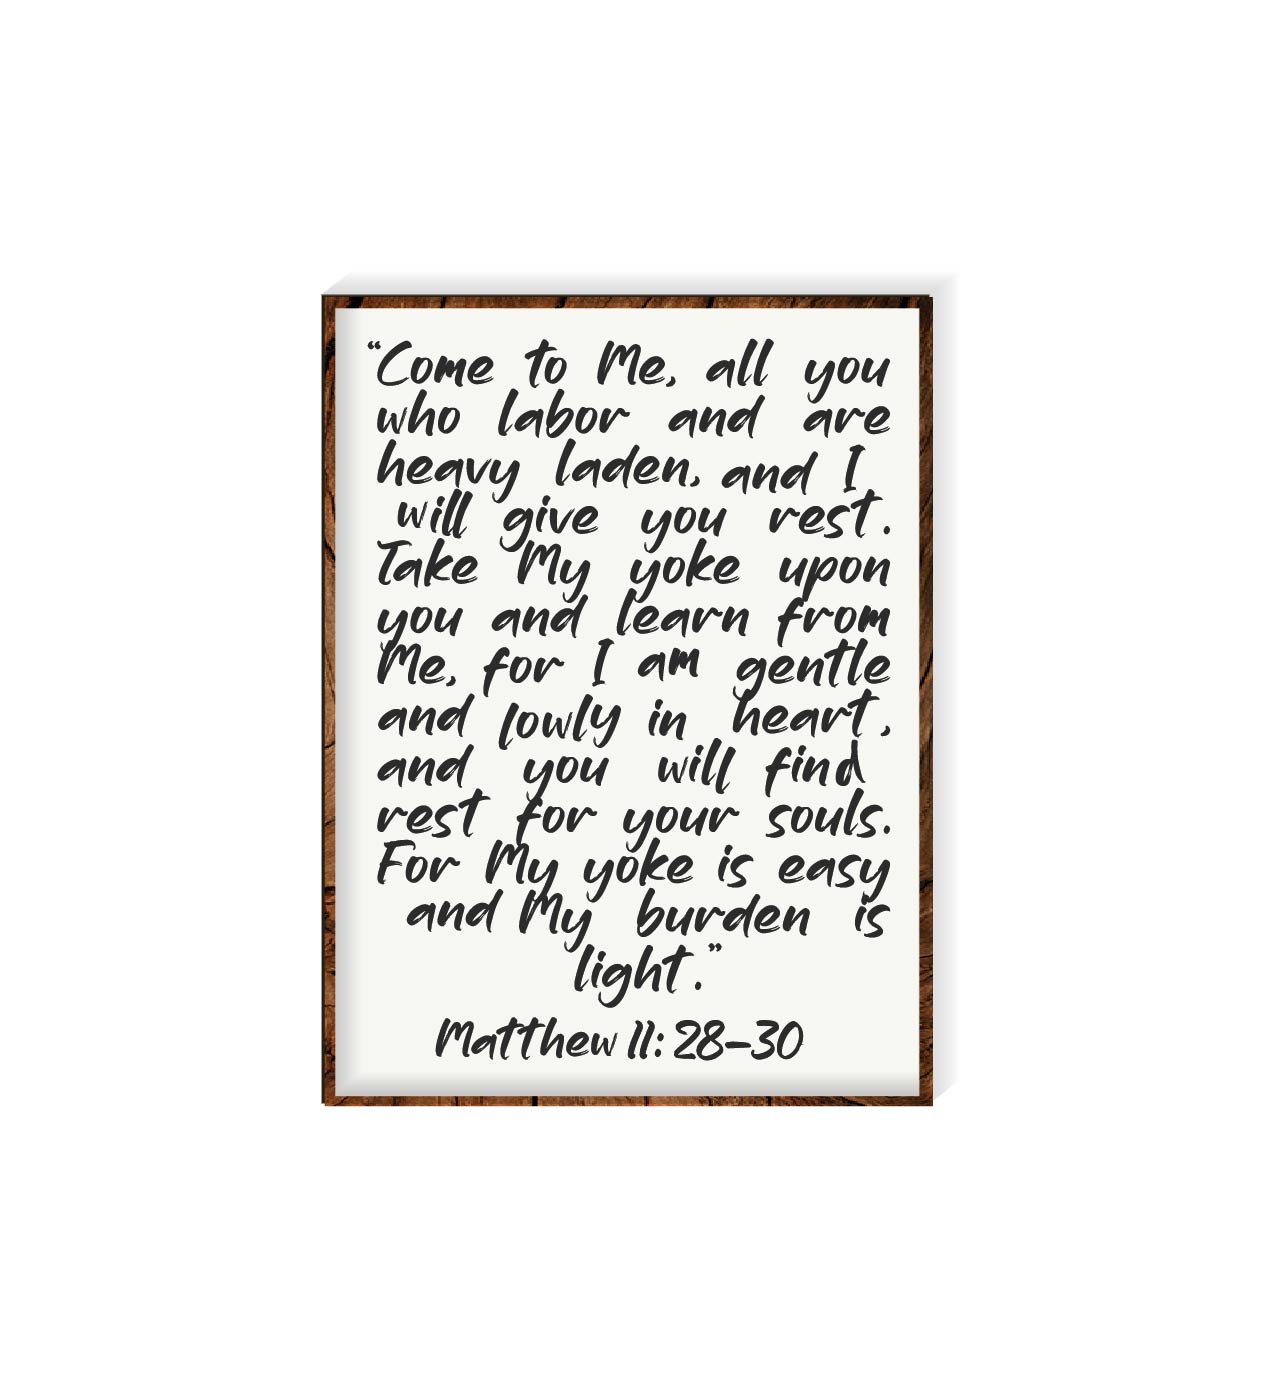 “Come to Me, all you
who labor and are
heavy laden, and I
will give you rest.
Take My yoke upon
you and learn from
Me, for I am gentle
and lowly in heart,
and you will find
rest for your souls.
For My yoke is easy
and My burden is
light.”
Matthew 11: 28-30